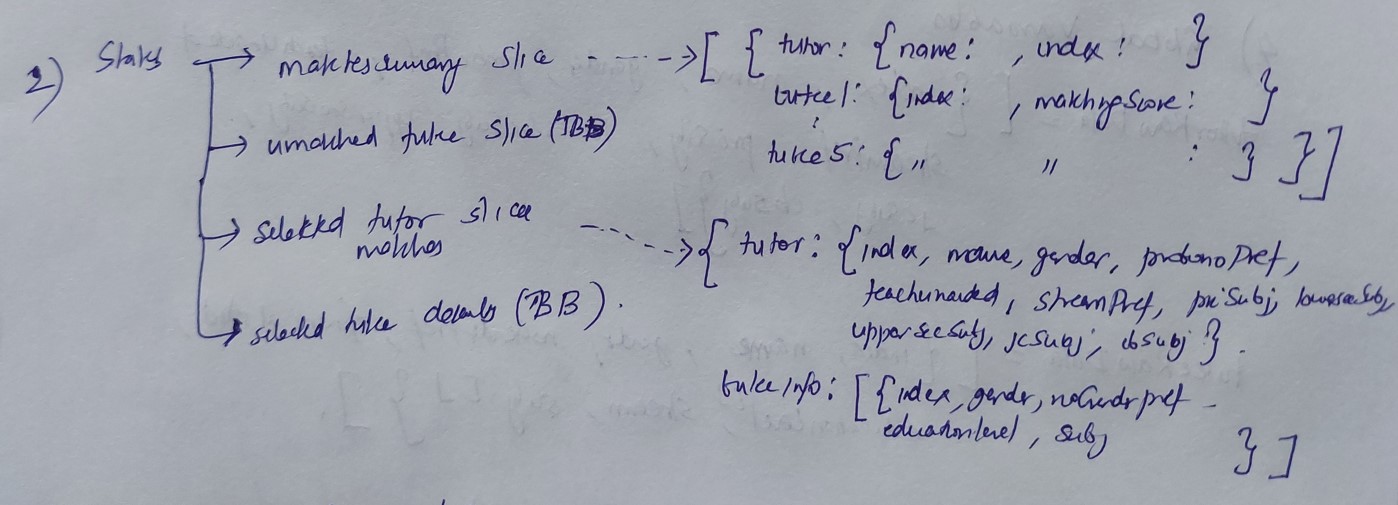 2) States → matchessummary slice ----> [ { tutor: {name: , index: }
tutee1: {index: , matchingScore: }
:
tutee5: { " " : } } ]
→ unmatched tutee slice (TBB)
→ selected tutor slice ----> { tutor: {index, name, gender, probonoPref,
matches
teacherunaided, streamPref, priSubj, lowersecSubj,
uppersecSubj, jcSubj, ibSubj } .
→ selected tutee details (TBB) .
tuteeInfo: [ {index, gender, noGendrpref
educationlevel, subj
} ]